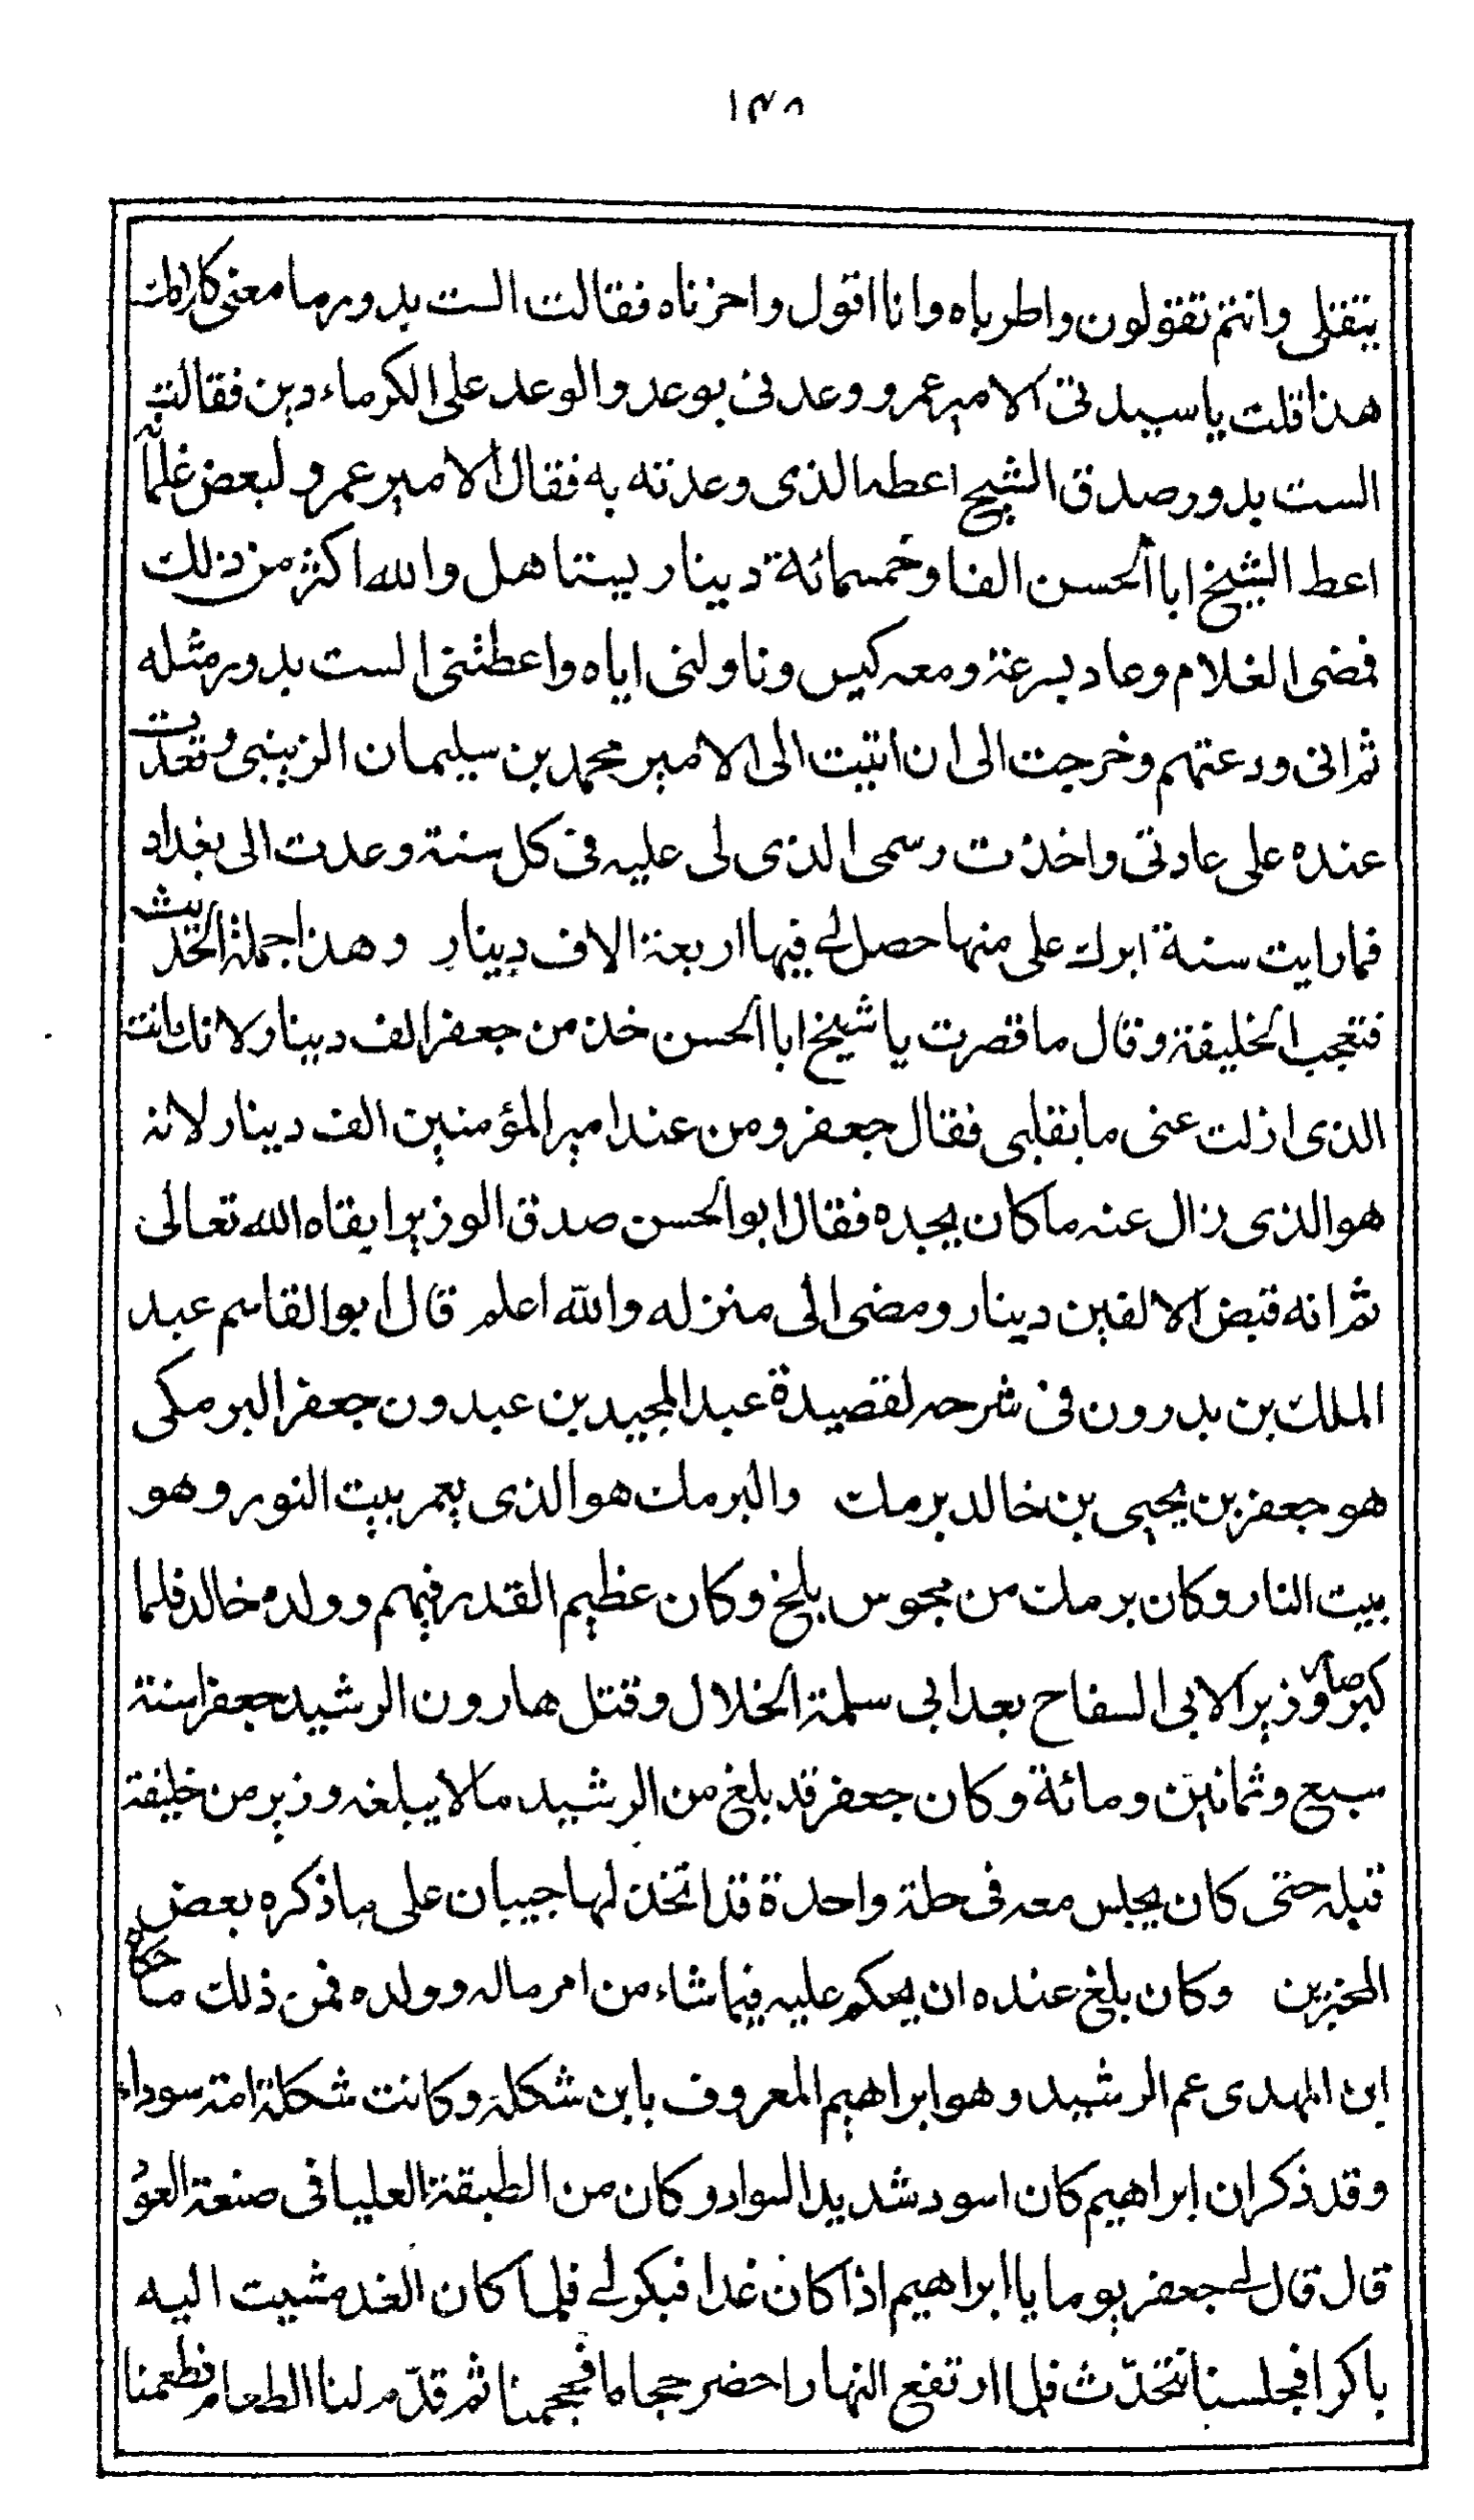 ١٣٨
يتقلى وانتم تقولون واطرباه وانا اقول واحزناه فقالت الست بدور ما معنى كلامك
هذا قلت يا سيدتى الامير عمرو وعدنى بوعد والوعد على الكرماء دين فقالت
الست بدور صدق الشيخ اعطه الذى وعدته به فقال الامير عمرو لبعض غلمانه
اعط الشيخ ابا الحسن الفا وخمسمائة دينار يستاهل والله اكثر من ذلك
فمضى الغلام وعاد بسرعة ومعه كيس وناولنى اياه واعطتنى الست بدور مثله
ثم انى ودعتهم وخرجت الى ان اتيت الى الامير محمد بن سليمان الزينبى وقعدت
عنده على عادتى واخذت رسمى الذى لى عليه فى كل سنة وعدت الى بغداد
فما رايت سنة ابرك على منها حصل لى فيها اربعة الاف دينار وهذا جملة الحديث
فتعجب الخليفة وقال ما قصرت يا شيخ ابا الحسن خذ من جعفر الف دينار لانك انت
الذى ازلت عنى ما بقلبى فقال جعفر ومن عند امير المؤمنين الف دينار لانه
هو الذى زال عنه ما كان يجده فقال ابو الحسن صدق الوزير ابقاه الله تعالى
ثم انه قبض الالفين دينار ومضى الى منزله والله اعلم قال ابو القاسم عبد
الملك بن بدرون فى شرحه لقصيدة عبد المجيد بن عبدون جعفر البرمكى
هو جعفر بن يحيى بن خالد برمك والبرمك هو الذى يعمر بيت النور وهو
بيت النار وكان برمك من مجوس بلخ وكان عظيم القدر فيهم وولده خالد فلما
كبر صار وزيرا لابى السفاح بعد ابى سلمة الخلال وقتل هارون الرشيد جعفرا سنة
سبع وثمانين ومائة وكان جعفر قد بلغ من الرشيد ما لا يبلغه وزير من خليفة
قبله حتى كان يجلس معه فى حلة واحدة قد اتخذ لها جيبان على ما ذكره بعض
المخبرين وكان بلغ عنده ان يحكم عليه فيما شاء من امر ماله وولده فمن ذلك ما حكاه
ابن المهدى عم الرشيد وهو ابراهيم المعروف بابن شكله وكانت شكلة امة سوداء
وقد ذكر ان ابراهيم كان اسود شديد السواد وكان من الطبقة العليا فى صنعة العود
قال قال لى جعفر يوما يا ابراهيم اذا كان غدا فبكر لى فلما كان الغد مشيت اليه
باكرا فجلسنا نتحدّث فلما ارتفع النهار احضر حجاما فحجمنا ثم قدّم لنا الطعام فطعمنا